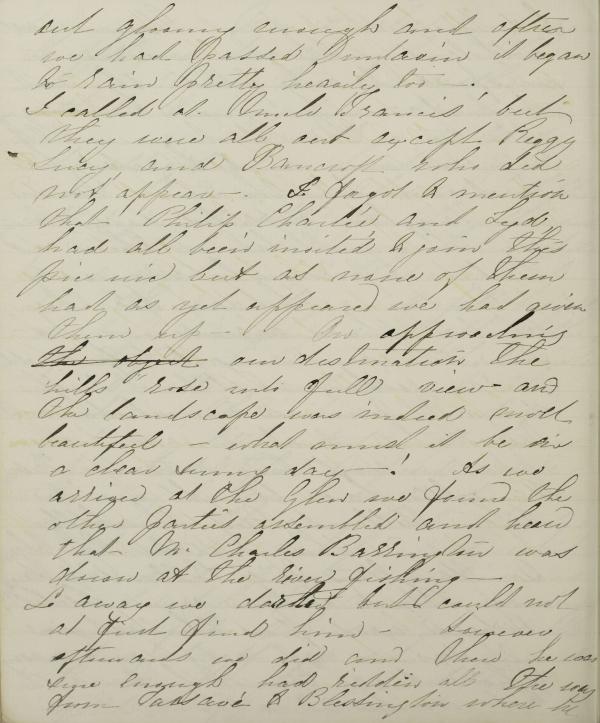 out gloomy enough and after
we had passed Dunlavin it began
to rain pretty heavily too —.
I called at Uncle Francis' but
they were all out except Reggy
Lucy and Bancroft who did
not appear —. I forgot to mention
that Philip Charlie and
had all been invited to join this
pic nic but as none of them
had as yet appeared we had given
them up — On approaching
the object our destination the
hills rose into full view and
the landscape was indeed most
beautiful — what must it be on
a clear sunny day — ! As we
arrived at the Glen we found the
other parties assembled and heard
that Mr Charles Barrington was
down at the river fishing —
So away we darted but could not
at first find him — However
afterwards we did and there he was
sure enough had ridden all the way
from to Blessington where he